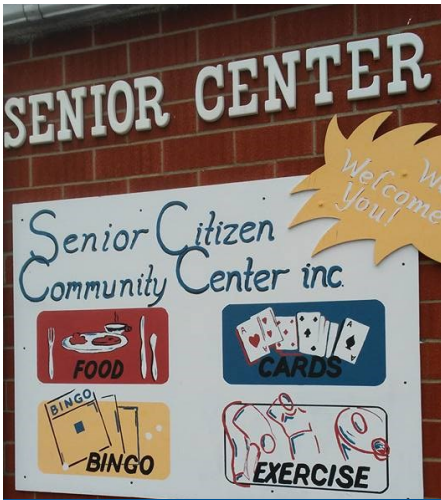 SENIOR CENTER
Welcome
You!
Senior Citizen
Community Center inc.
FOOD
CARDS
BINGO
BINGO
EXERCISE